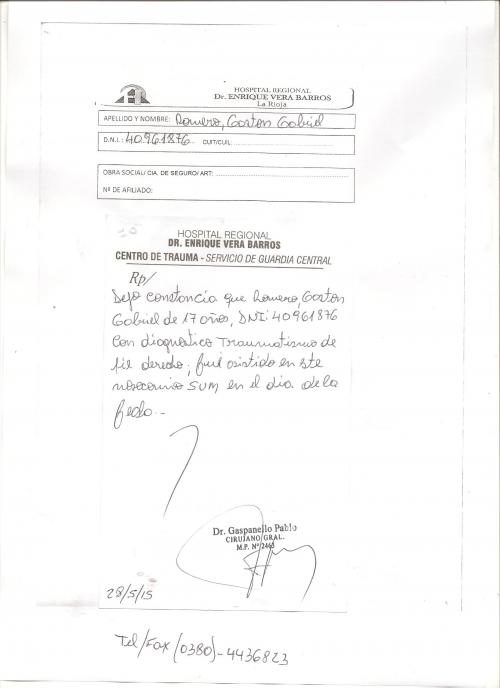 HOSPITAL REGIONAL
Dr. ENRIQUE VERA BARROS
La Rioja
APELLIDO Y NOMBRE: Romero, Gaston Gabriel
D.N.I.: 40961876 CUIT/CUIL:
OBRA SOCIAL/ CIA. DE SEGURO/ ART:
Nº DE AFILIADO:
HOSPITAL REGIONAL
DR. ENRIQUE VERA BARROS
CENTRO DE TRAUMA - SERVICIO DE GUARDIA CENTRAL
Rp/
Dejo constancia que Romero, Gaston
Gabriel de 17 años, DNI: 40961876
con diagnostico Traumatismo de
pie derecho; fue asistido en este
nosocomio SUM en el dia de la
fecha.-
Dr. Gaspanello Pablo
CIRUJANO GRAL.
M.P. Nº 2463
28/5/15
Tel/Fax (0380)-4436823